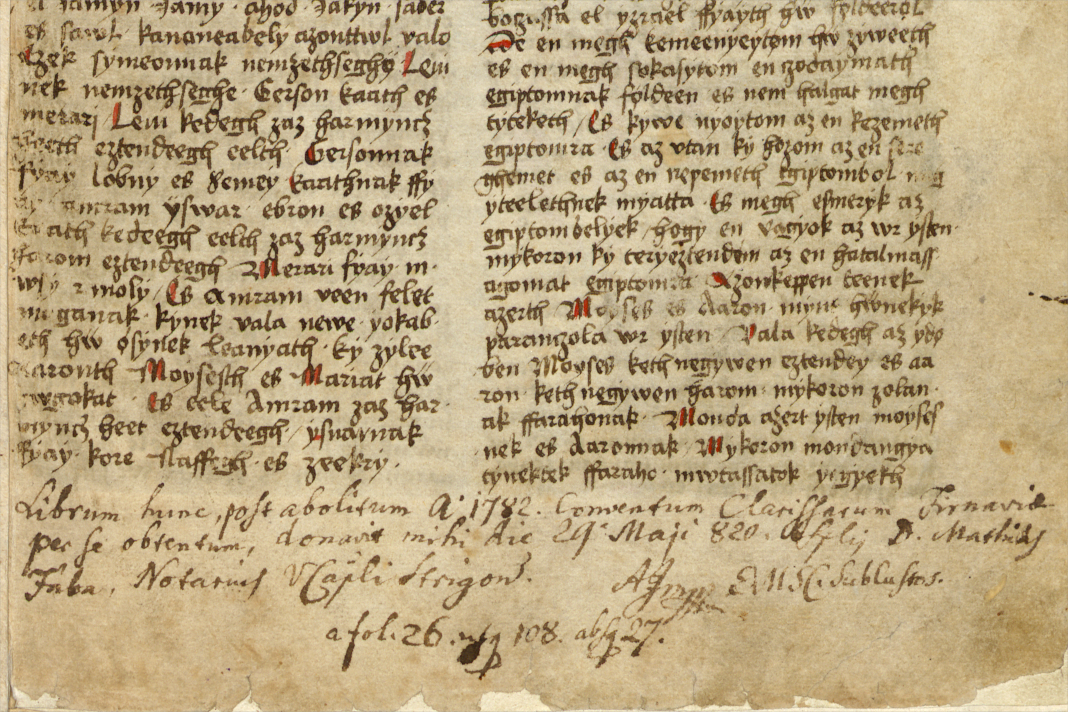 Jamyn Jamy ahod Jakyn saher
es sawl kananeabely azonttwl valo
Ezek symeonnak nemzethseghy Lewi
nek nemzethseghe Gerson kaath es
merari Lewi kedegh zaz harmyncz
heeth eztendeegh eelth Gersonnak
fyay lobny es Semey kaathnak ffy
amram yswar ebron es ozyel
kaath kedeegh eelth zaz harmyncz
harom eztendeegh Merari fyay m
mosy Es Amram veen felet
maganak kynek vala newe yokab
eth hw osynek leanyath ky zylee
Aaronth Moysesth es Mariat hw
hwgokat Es eele Amram zaz har
myncz heet eztendeegh ysuarnak
fyay kore Naffegh es zeekry
bozussa el yzrael ffyayth hw foldeerol
De en megh kemeenyeytom hw zyweeth
es en megh sokasytom en zodaymath
egiptomnak foldeen es nem halgat megh
tyteketh Es kywe nyoytom az en kezemeth
egiptomra Es az vtan ky hozom az en sere
ghemet es az en nepemeth Egiptombol nag
yteelethnek myatta Es megh esmeryk az
egiptombelyek hogy en vagyok az wr ysten
mykoron ky teryeztendem az en hatalmass
agomat egiptomra Azonkeppen teenek
azerth Moyses es Aaron mynt hwnekyk
paranczola wr ysten Vala kedegh az ydo
ben Moyses keth negywen eztendey es aa
ron keth negywen harom mykoron zolan
ak ffarahonak Monda azert ysten moyses
nek es Aaronnak Mykoron mondangya
tynektek ffaraho mwtassatok yegyekh
Librum hunc, post abolitum A. 1782. Conventum Clarissarum Tirnaviae
per se obtentum, donavit mihi die 29 Maji 820. D. Mathias
Faba, Notarius VCapli Strigon.
a fol. 26. usq 108. absq 27.